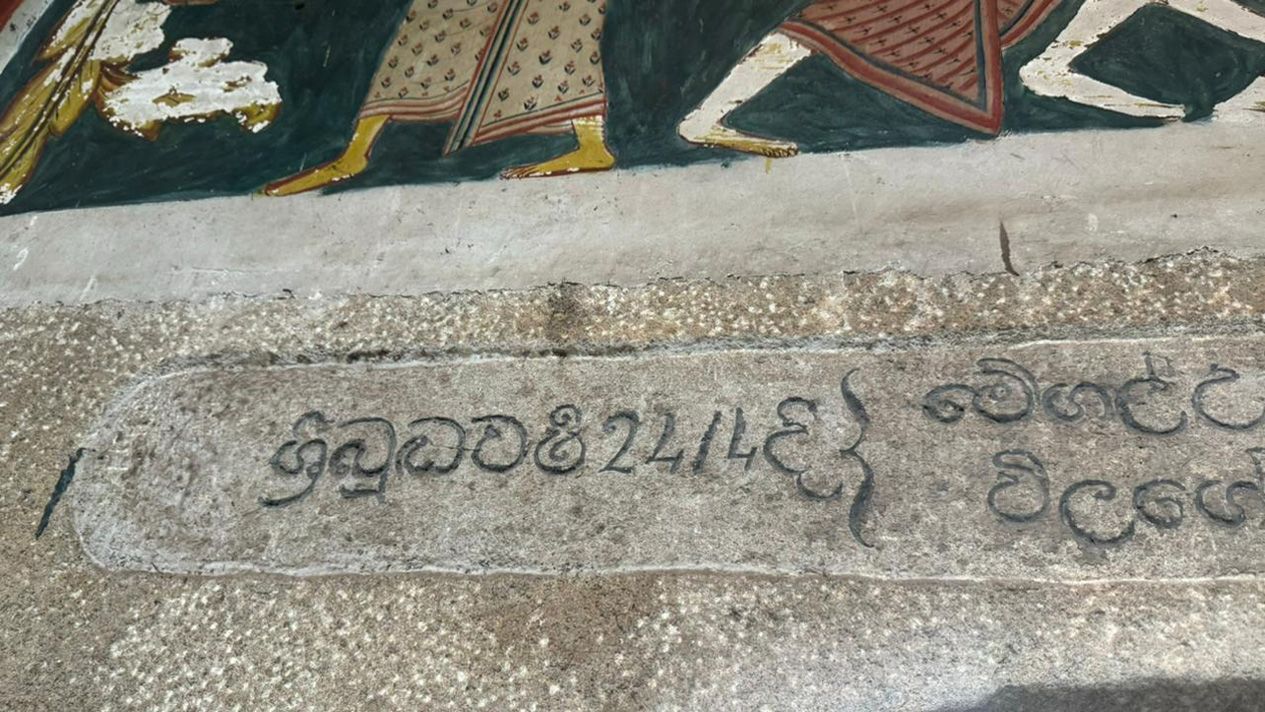 ශ්‍රීබුද්ධවර්‍ෂ 2414 දි {
මේගල්ට
විලයේ